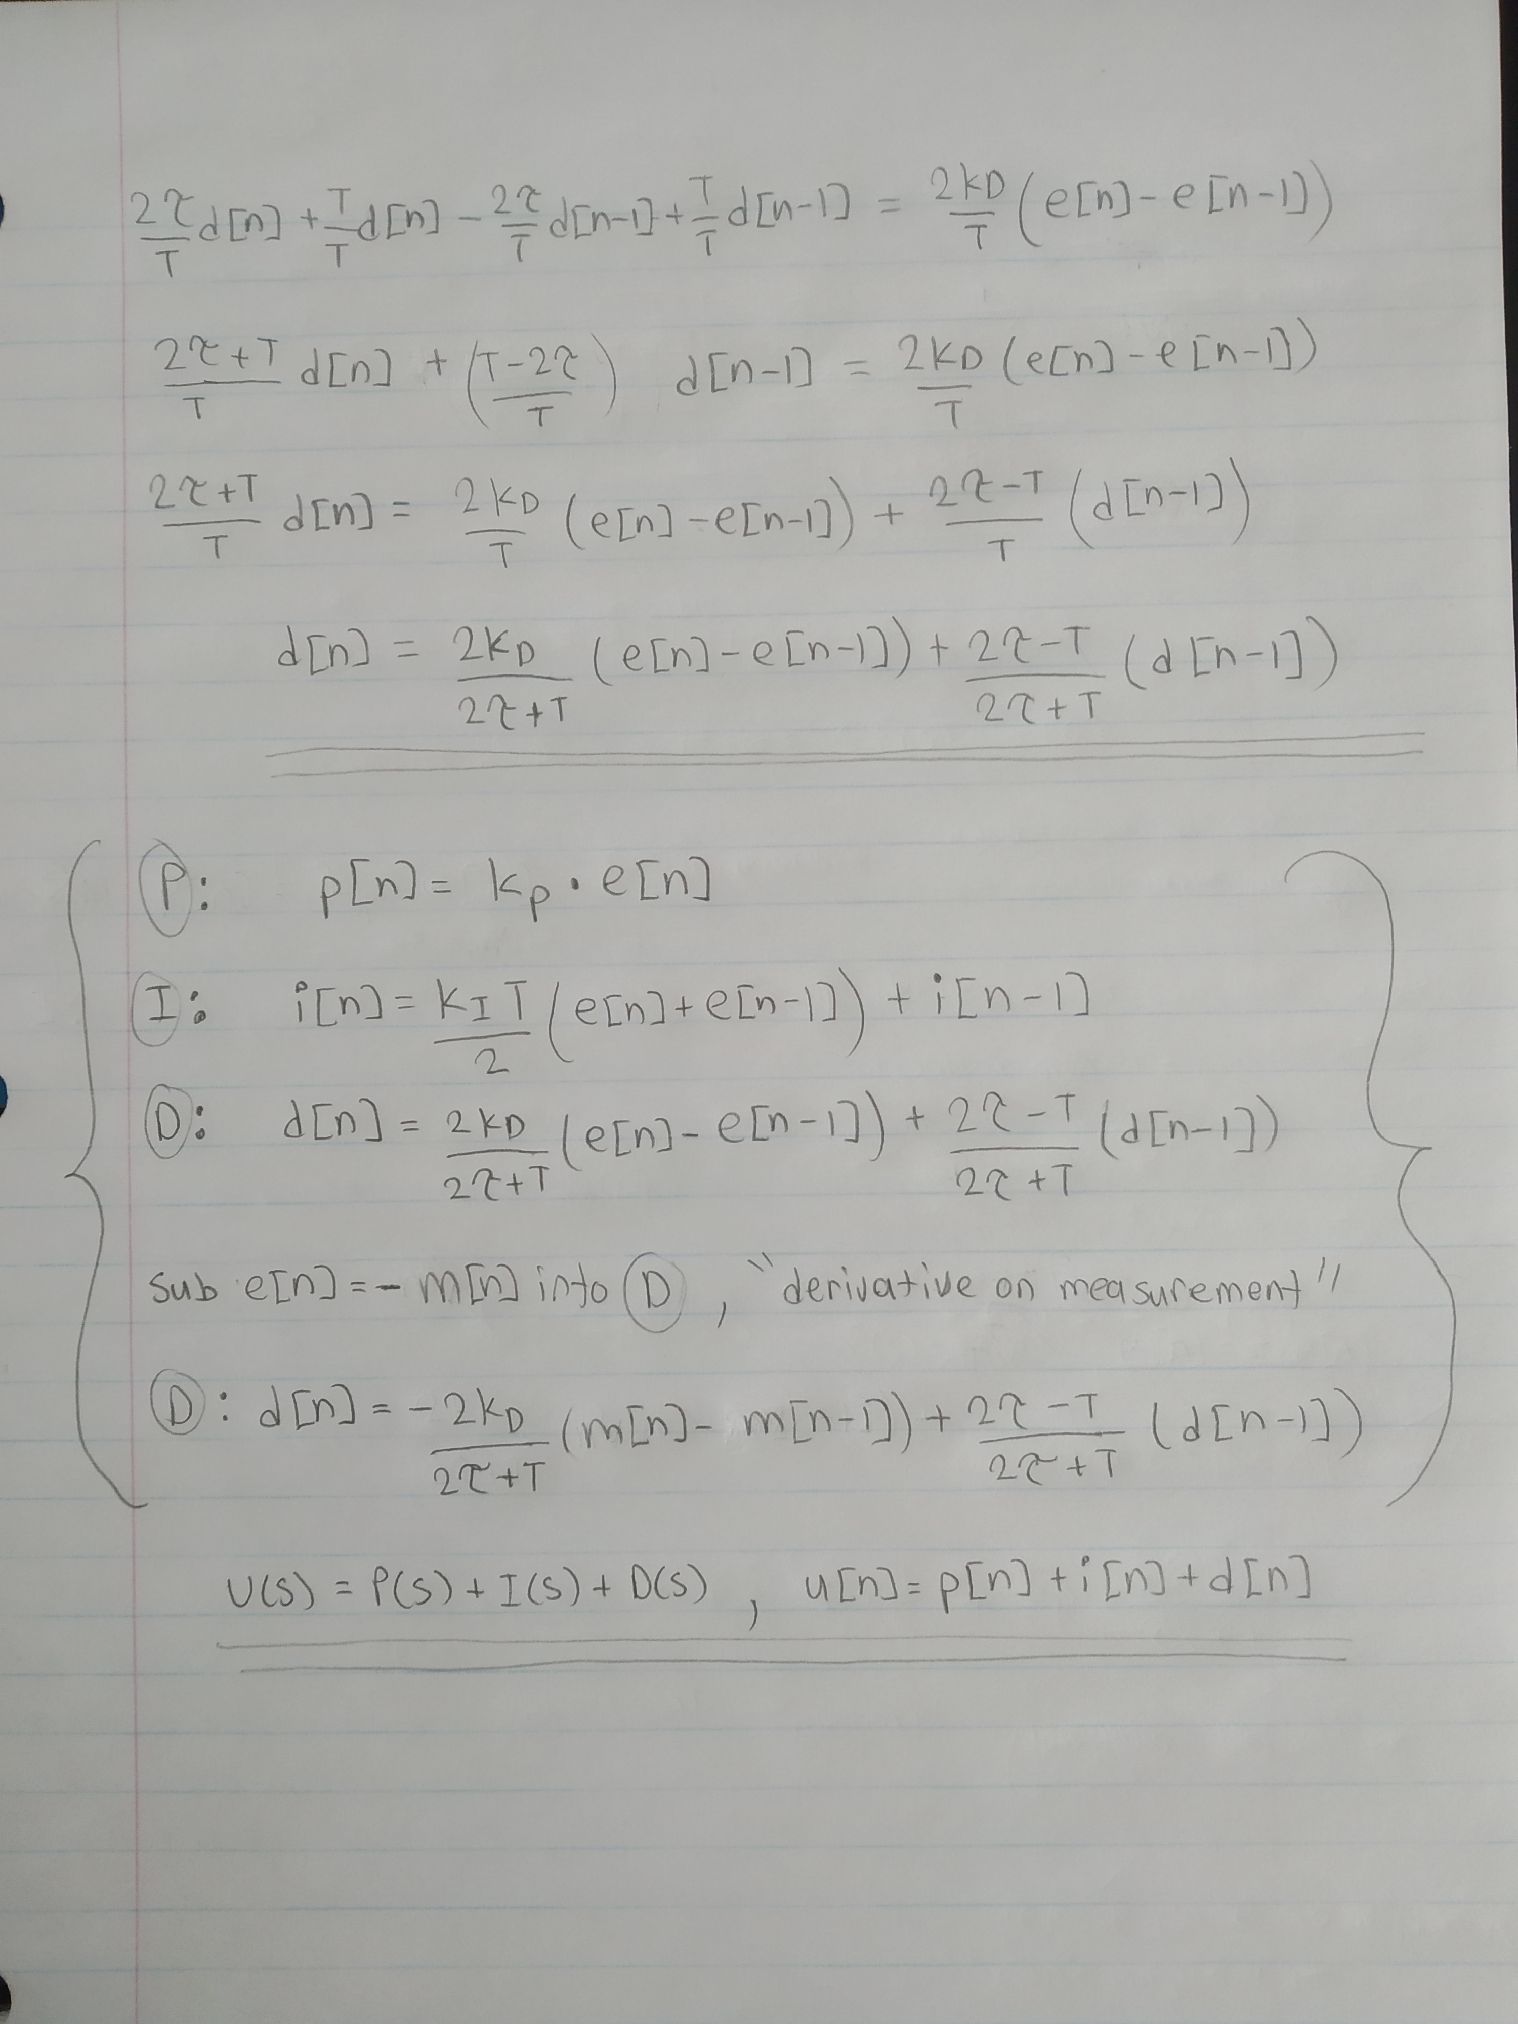 2τ/T d[n] + T/T d[n] - 2τ/T d[n-1] + T/T d[n-1] = 2KD/T (e[n] - e[n-1])
2τ+T/T d[n] + (T-2τ/T) d[n-1] = 2KD/T (e[n] - e[n-1])
2τ+T/T d[n] = 2KD/T (e[n] - e[n-1]) + 2τ-T/T (d[n-1])
d[n] = 2KD/2τ+T (e[n] - e[n-1]) + 2τ-T/2τ+T (d[n-1])
P: p[n] = Kp · e[n]
I: i[n] = KI T/2 (e[n] + e[n-1]) + i[n-1]
D: d[n] = 2KD/2τ+T (e[n] - e[n-1]) + 2τ-T/2τ+T (d[n-1])
sub e[n] = - m[n] into D, "derivative on measurement"
D: d[n] = -2KD/2τ+T (m[n] - m[n-1]) + 2τ-T/2τ+T (d[n-1])
U(s) = P(s) + I(s) + D(s), u[n] = p[n] + i[n] + d[n]